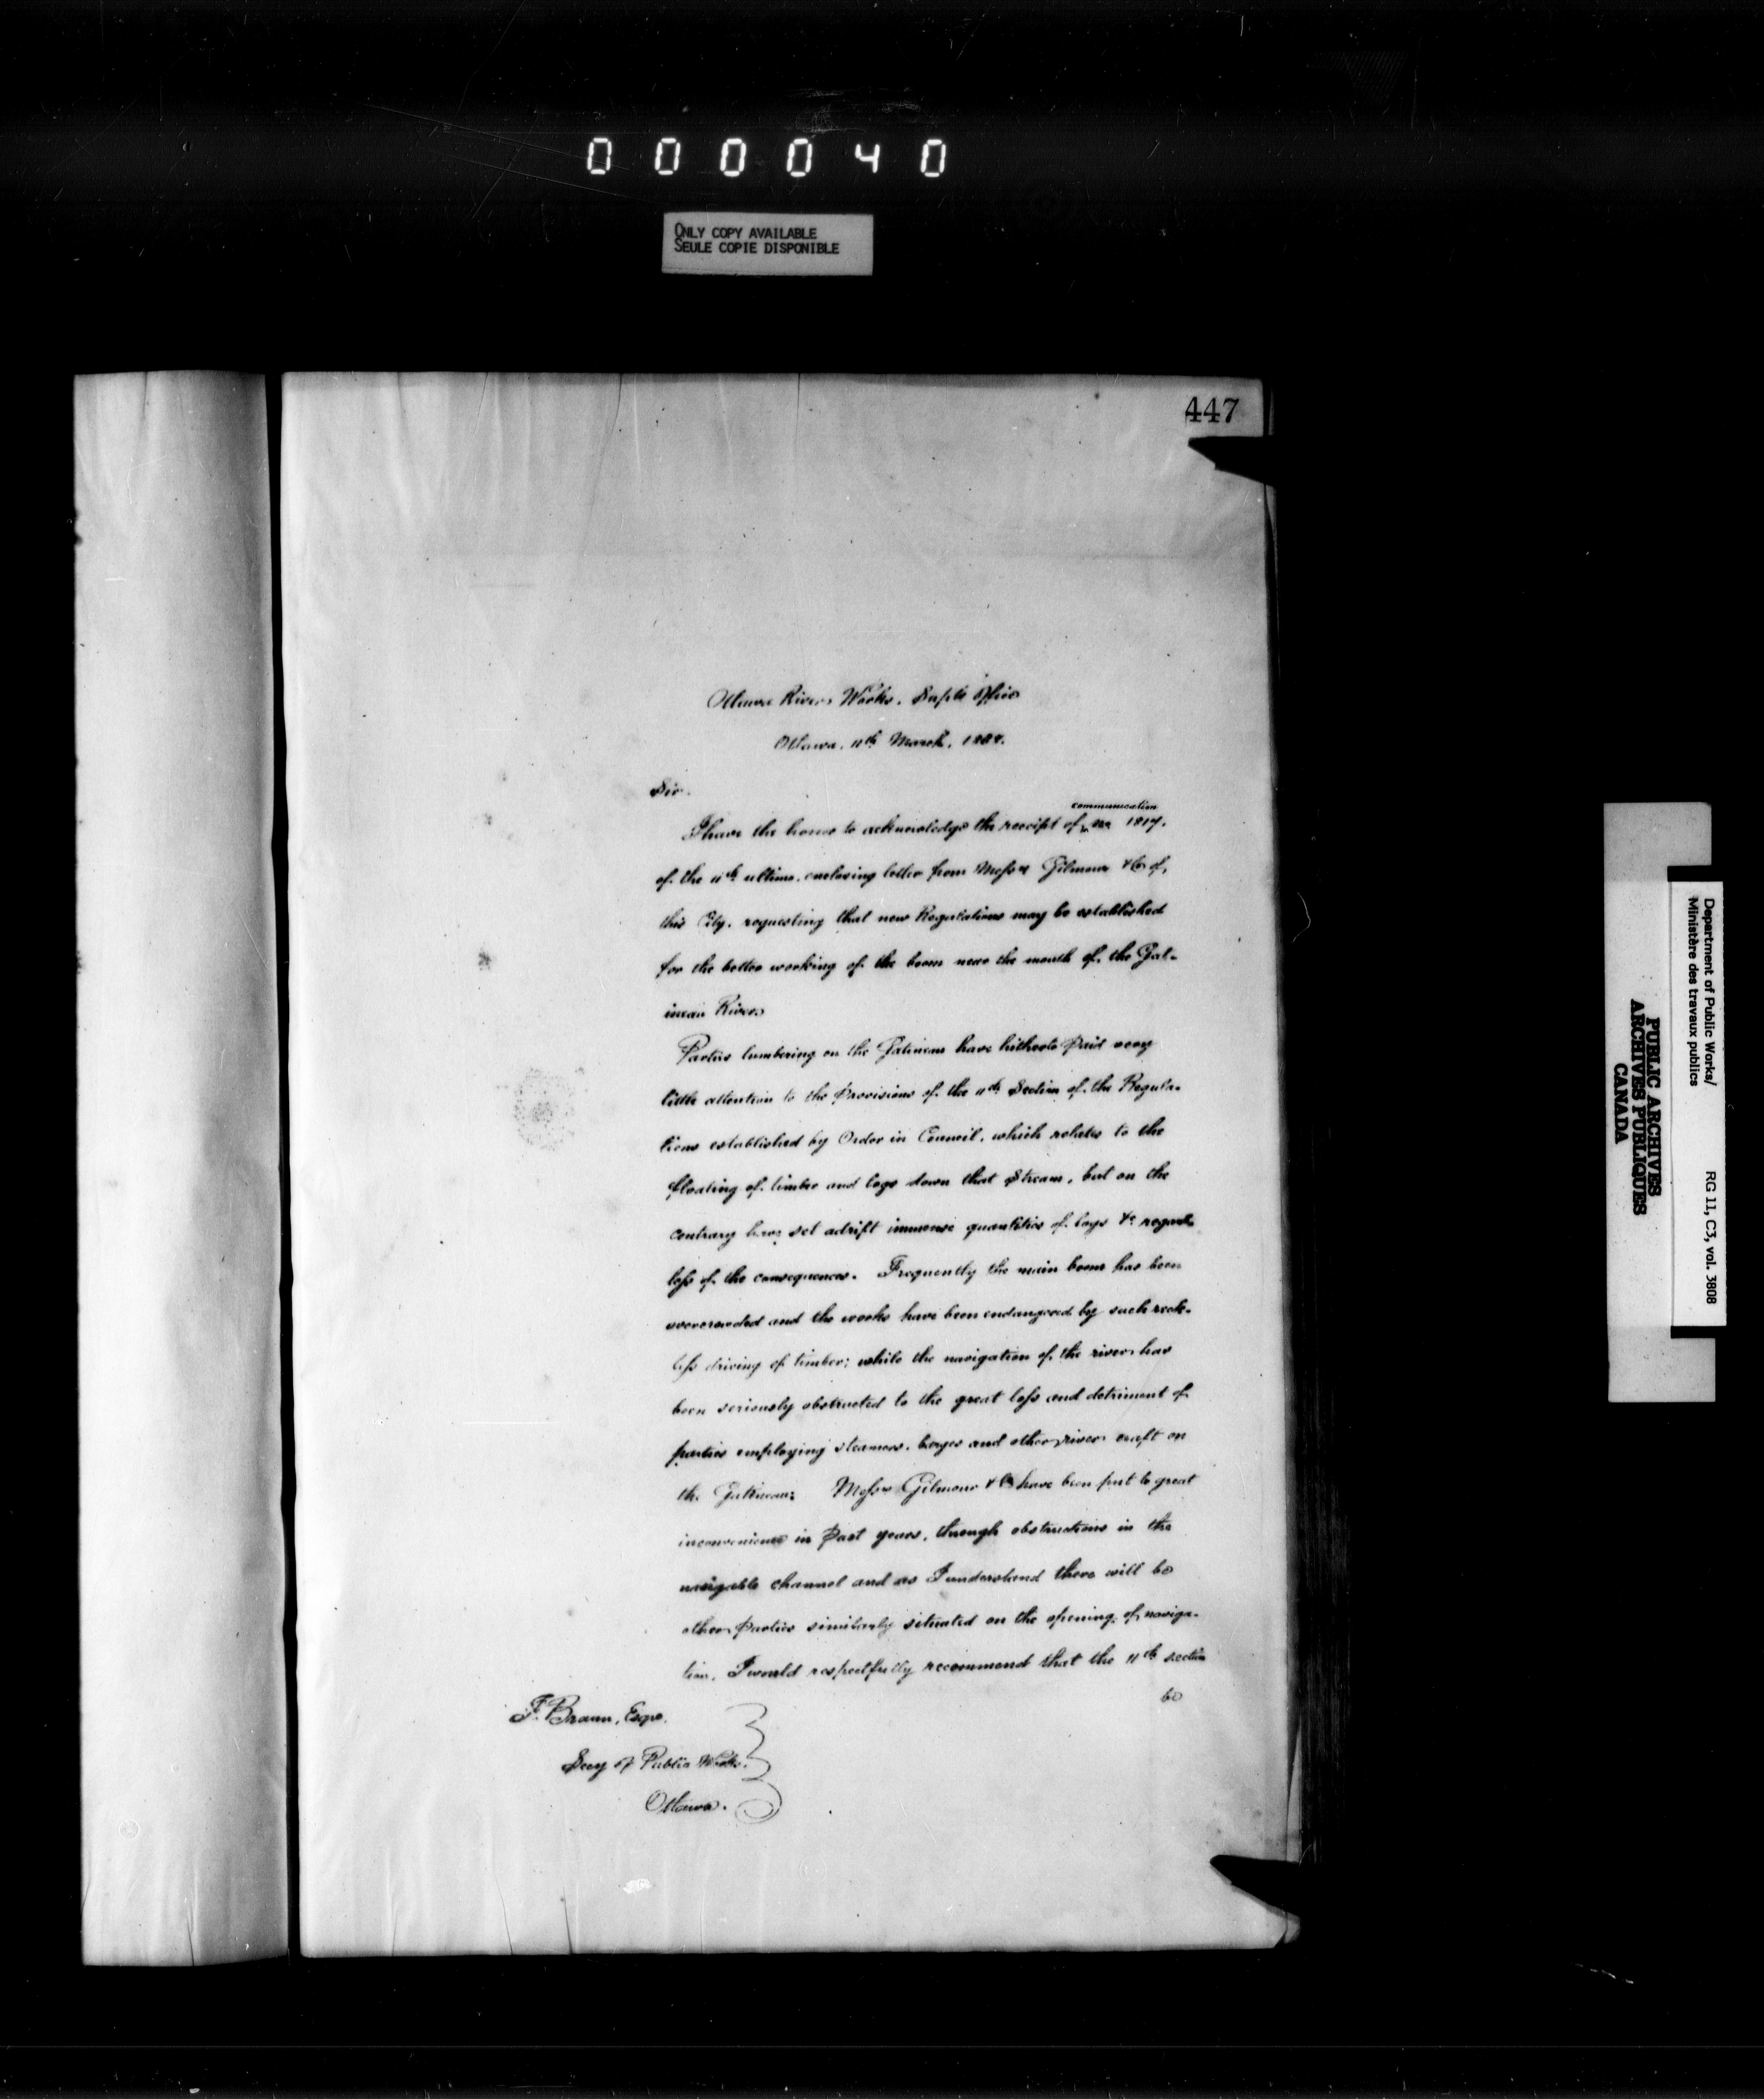 000040
ONLY COPY AVAILABLE
SEULE COPIE DISPONIBLE
447
Ottawa River Works. Supts Office
Ottawa. 11th March,
Sir.
communication
I have the honor to acknowledge the receipt of 1817.
of the 11th ultimo. enclosing letter from Messrs Gilmour & Co of,
this City. requesting that new Regulations may be established
for the better working of the boom near the mouth of the Gat-
ineau River
Parties lumbering on the Gatineau have hitherto paid very
little attention to the Provisions of the 11th Section of the Regula-
tions established by Order in Council, which relates to the
floating of timber and logs down that Stream, but on the
contrary have set adrift immense quantities of logs &c regard-
less of the consequences. Frequently the main boom has been
overcrowded and the works have been endangered by such reck-
less driving of timber; while the navigation of the river has
been seriously obstructed to the great loss and detriment of
parties employing steamers, barges and other river craft on
the Gatineau; Messrs Gilmour & Co have been put to great
inconvenience in past years, through obstructions in the
navigable channel and as I understand there will be
other parties similarly situated on the opening of naviga-
tion, I would respectfully recommend that the 11th section
be
F. Braun, Esqre.
Secy of Public Works.
Ottawa.
Department of Public Works/
Ministère des travaux publics
RG 11, C3, vol. 3808
PUBLIC ARCHIVES
ARCHIVES PUBLIQUES
CANADA